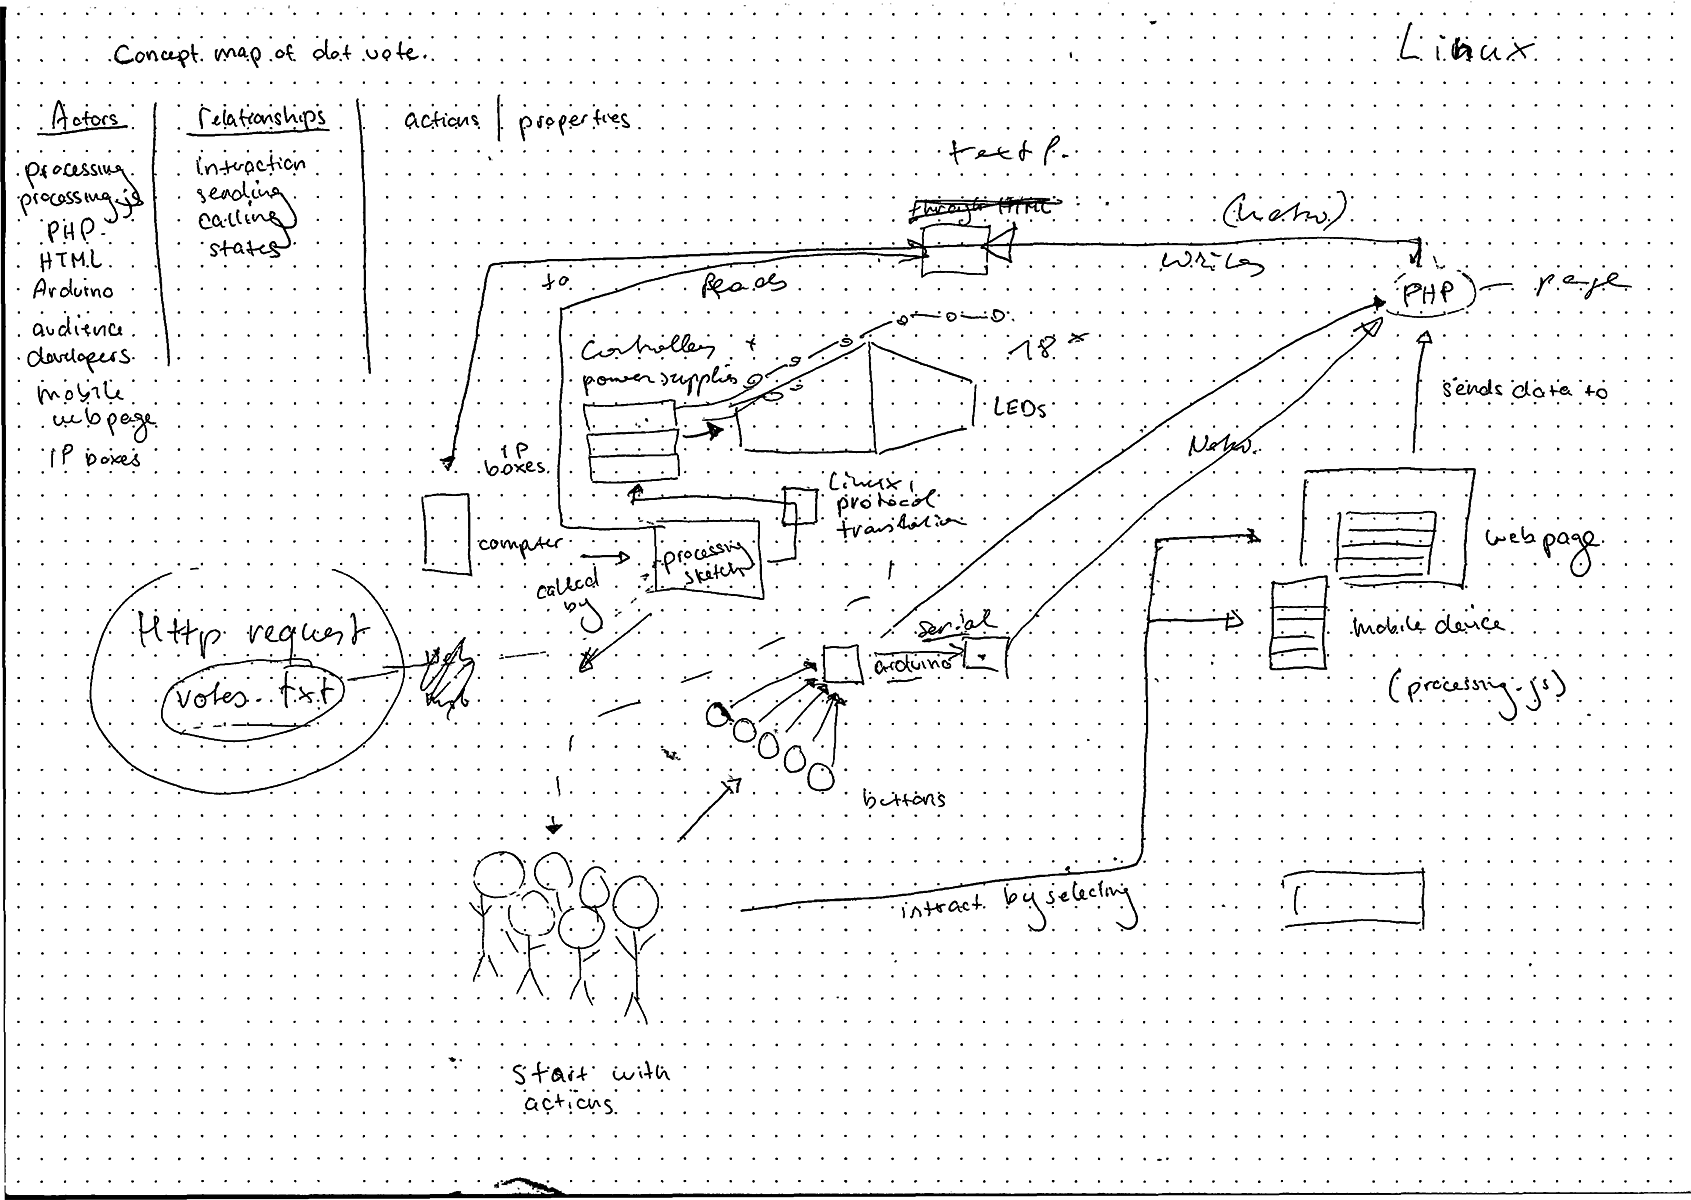 Concept map of dot vote.
Linux
Actors
relationships
actions
properties
processing
processing.js
PHP
HTML
Arduino
audience
developers
mobile
webpage
IP boxes
interaction
sending
calling
states
text f.
through HTML
to
Reads
writes
PHP
page
Controllers +
power supplies
18 x
LEDs
IP
boxes
Linux,
protocol
translation
sends data to
computer
called
by
processing
sketch
webpage
mobile device
(processing.js)
Http request
votes.txt
serial
arduino
buttons
intract by selecting
Start with
actions